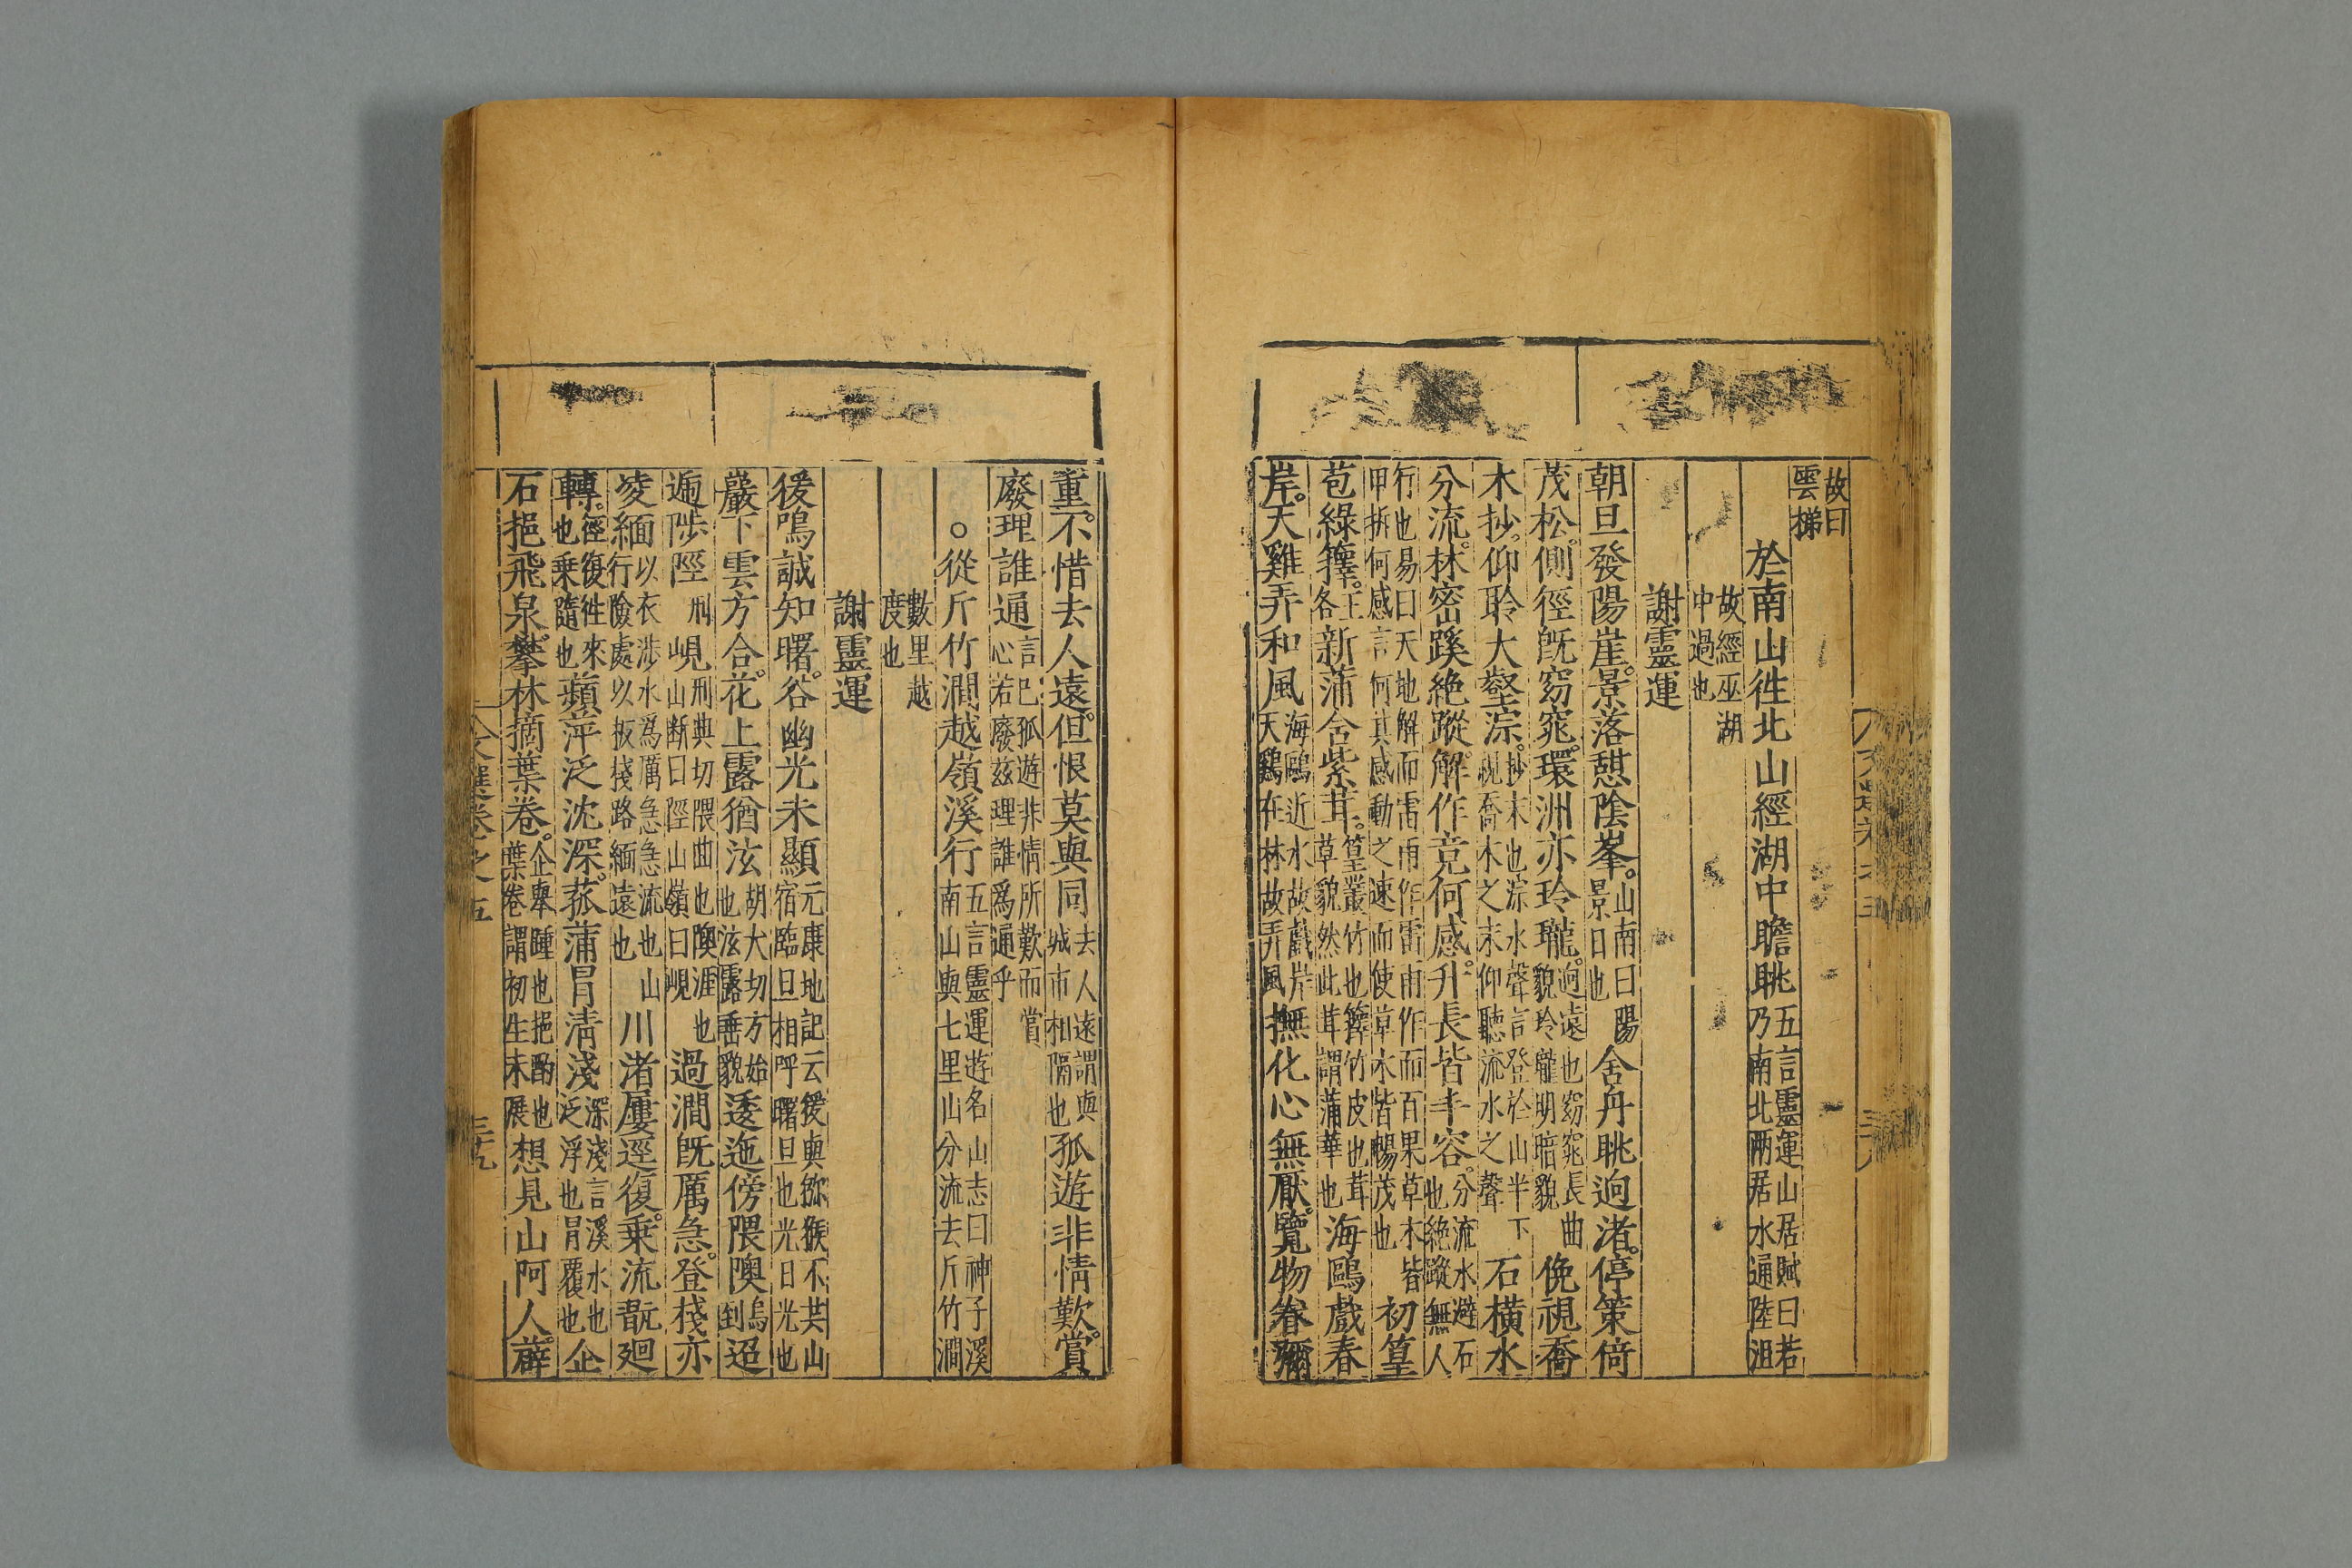 故曰雲梯
於南山徃北山經湖中瞻眺五言靈運山居賦曰若乃南北兩居水通陸沮
故經巫湖中過也
謝靈運
朝旦發陽崖景落憇陰峯山南曰陽景日也舍舟眺逈渚停策倚
茂松側徑旣窈窕環洲亦玲瓏逈遠也窈窕長曲貌玲瓏明暗貌俛視喬
木杪仰聆大壑淙杪木末也淙水聲言登於山半下視喬木之末仰聽流水之聲石橫水
分流林密蹊絶蹤解作竟何感升長皆丰容分流水避石也絶蹤無人
行也易曰天地解而雷雨作雷雨作而百果草木皆甲拆何感言何其感動之速而使草木皆暢茂也初篁
苞綠籜各王新蒲含紫茸篁叢竹也籜竹皮也茸草貌然此茸謂蒲華也海鷗戲春
岸天雞弄和風海鷗近水故戲岸天鷄在林故弄風撫化心無厭覽物眷彌
重不惜去人遠但恨莫與同去人遠謂與城市相隔也孤遊非情歎賞
廢理誰通言已孤遊非情所歎而賞心若廢兹理誰爲通乎
○從斤竹澗越嶺溪行五言靈運遊名山志曰神子溪南山與七里山分流去斤竹澗
數里越度也
謝靈運
猨鳴誠知曙谷幽光未顯元康地記云猨與獼猴不共山宿臨旦相呼曙旦也光日光也
巖下雲方合花上露猶泫胡犬切方始也泫露垂貌逶迤傍隈隩烏到迢
遞陟陘刑峴刑典切隈曲也隩涯也山斷曰陘山嶺曰峴過澗旣厲急登棧亦
凌緬以衣涉水爲厲急急流也山行險處以板棧路緬遠也川渚屢逕復乗流翫廻
轉徑復徃來也乗隨也蘋萍泛沈深菰蒲冐清淺深淺言溪水也泛浮也冐覆也企
石挹飛泉攀林摘葉卷企舉踵也挹酌也葉卷謂初生未展想見山阿人薜
文選卷之五
三十九